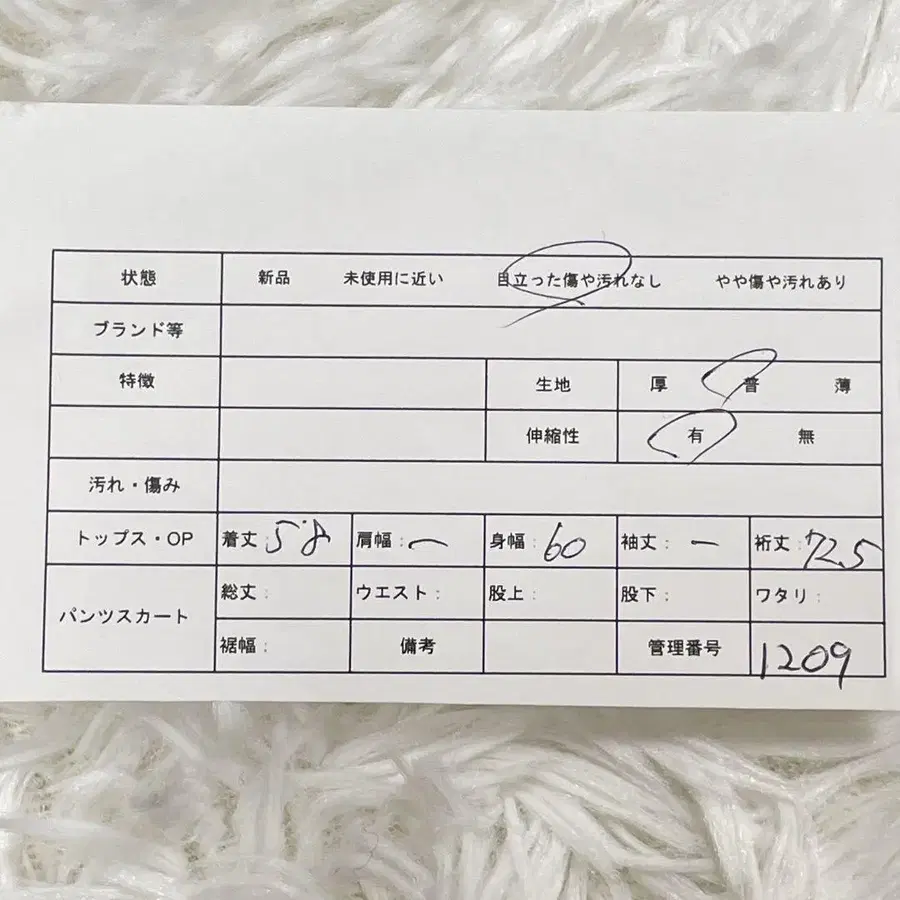 状態 新品 未使用に近い 目立った傷や汚れなし やや傷や汚れあり
ブランド等
特徴 生地 厚 普 薄
伸縮性 有 無
汚れ・傷み
トップス・OP 着丈:58 肩幅:ー 身幅:60 袖丈:ー 裄丈:72.5
パンツスカート 総丈: ウエスト: 股上: 股下: ワタリ:
裾幅: 備考 管理番号 1209